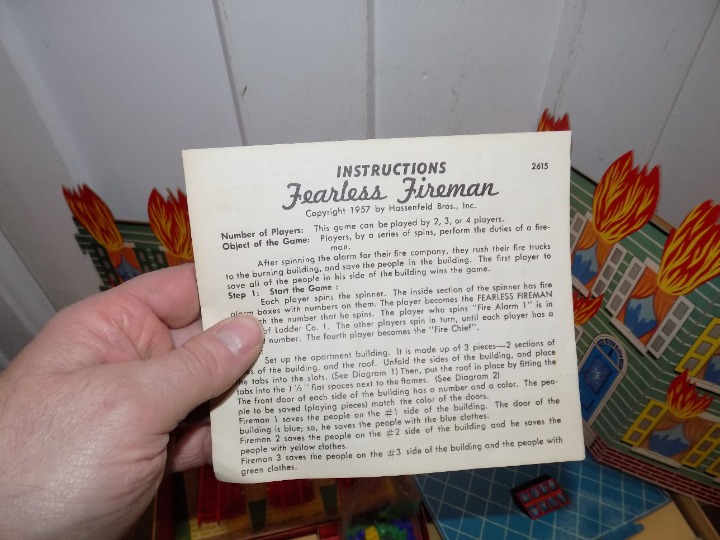 INSTRUCTIONS
2615
Fearless Fireman
Copyright 1957 by Hassenfeld Bros., Inc.
Number of Players: This game can be played by 2, 3, or 4 players.
Object of the Game: Players, by a series of spins, perform the duties of a fire-
man.
After spinning the alarm for their fire company, they rush their fire trucks
to the burning building, and save the people in the building. The first player to
save all of the people in his side of the building wins the game.
Step 1: Start the Game:
Each player spins the spinner. The inside section of the spinner has fire
alarm boxes with numbers on them. The player becomes the FEARLESS FIREMAN
the number that he spins. The player who spins "Fire Alarm 1" is in
of Ladder Co. 1. The other players spin in turn, until each player has a
number. The fourth player becomes the "Fire Chief".
Set up the apartment building. It is made up of 3 pieces—2 sections of
of the building, and the roof. Unfold the sides of the building, and place
the tabs into the slots. (See Diagram 1) Then, put the roof in place by fitting the
tabs into the 1½" flat spaces next to the flames. (See Diagram 2)
The front door of each side of the building has a number and a color. The peo-
ple to be saved (playing pieces) match the color of the doors.
Fireman 1 saves the people on the #1 side of the building. The door of the
building is blue; so, he saves the people with the blue clothes.
Fireman 2 saves the people on the #2 side of the building and he saves the
people with yellow clothes.
Fireman 3 saves the people on the #3 side of the building and the people with
green clothes.